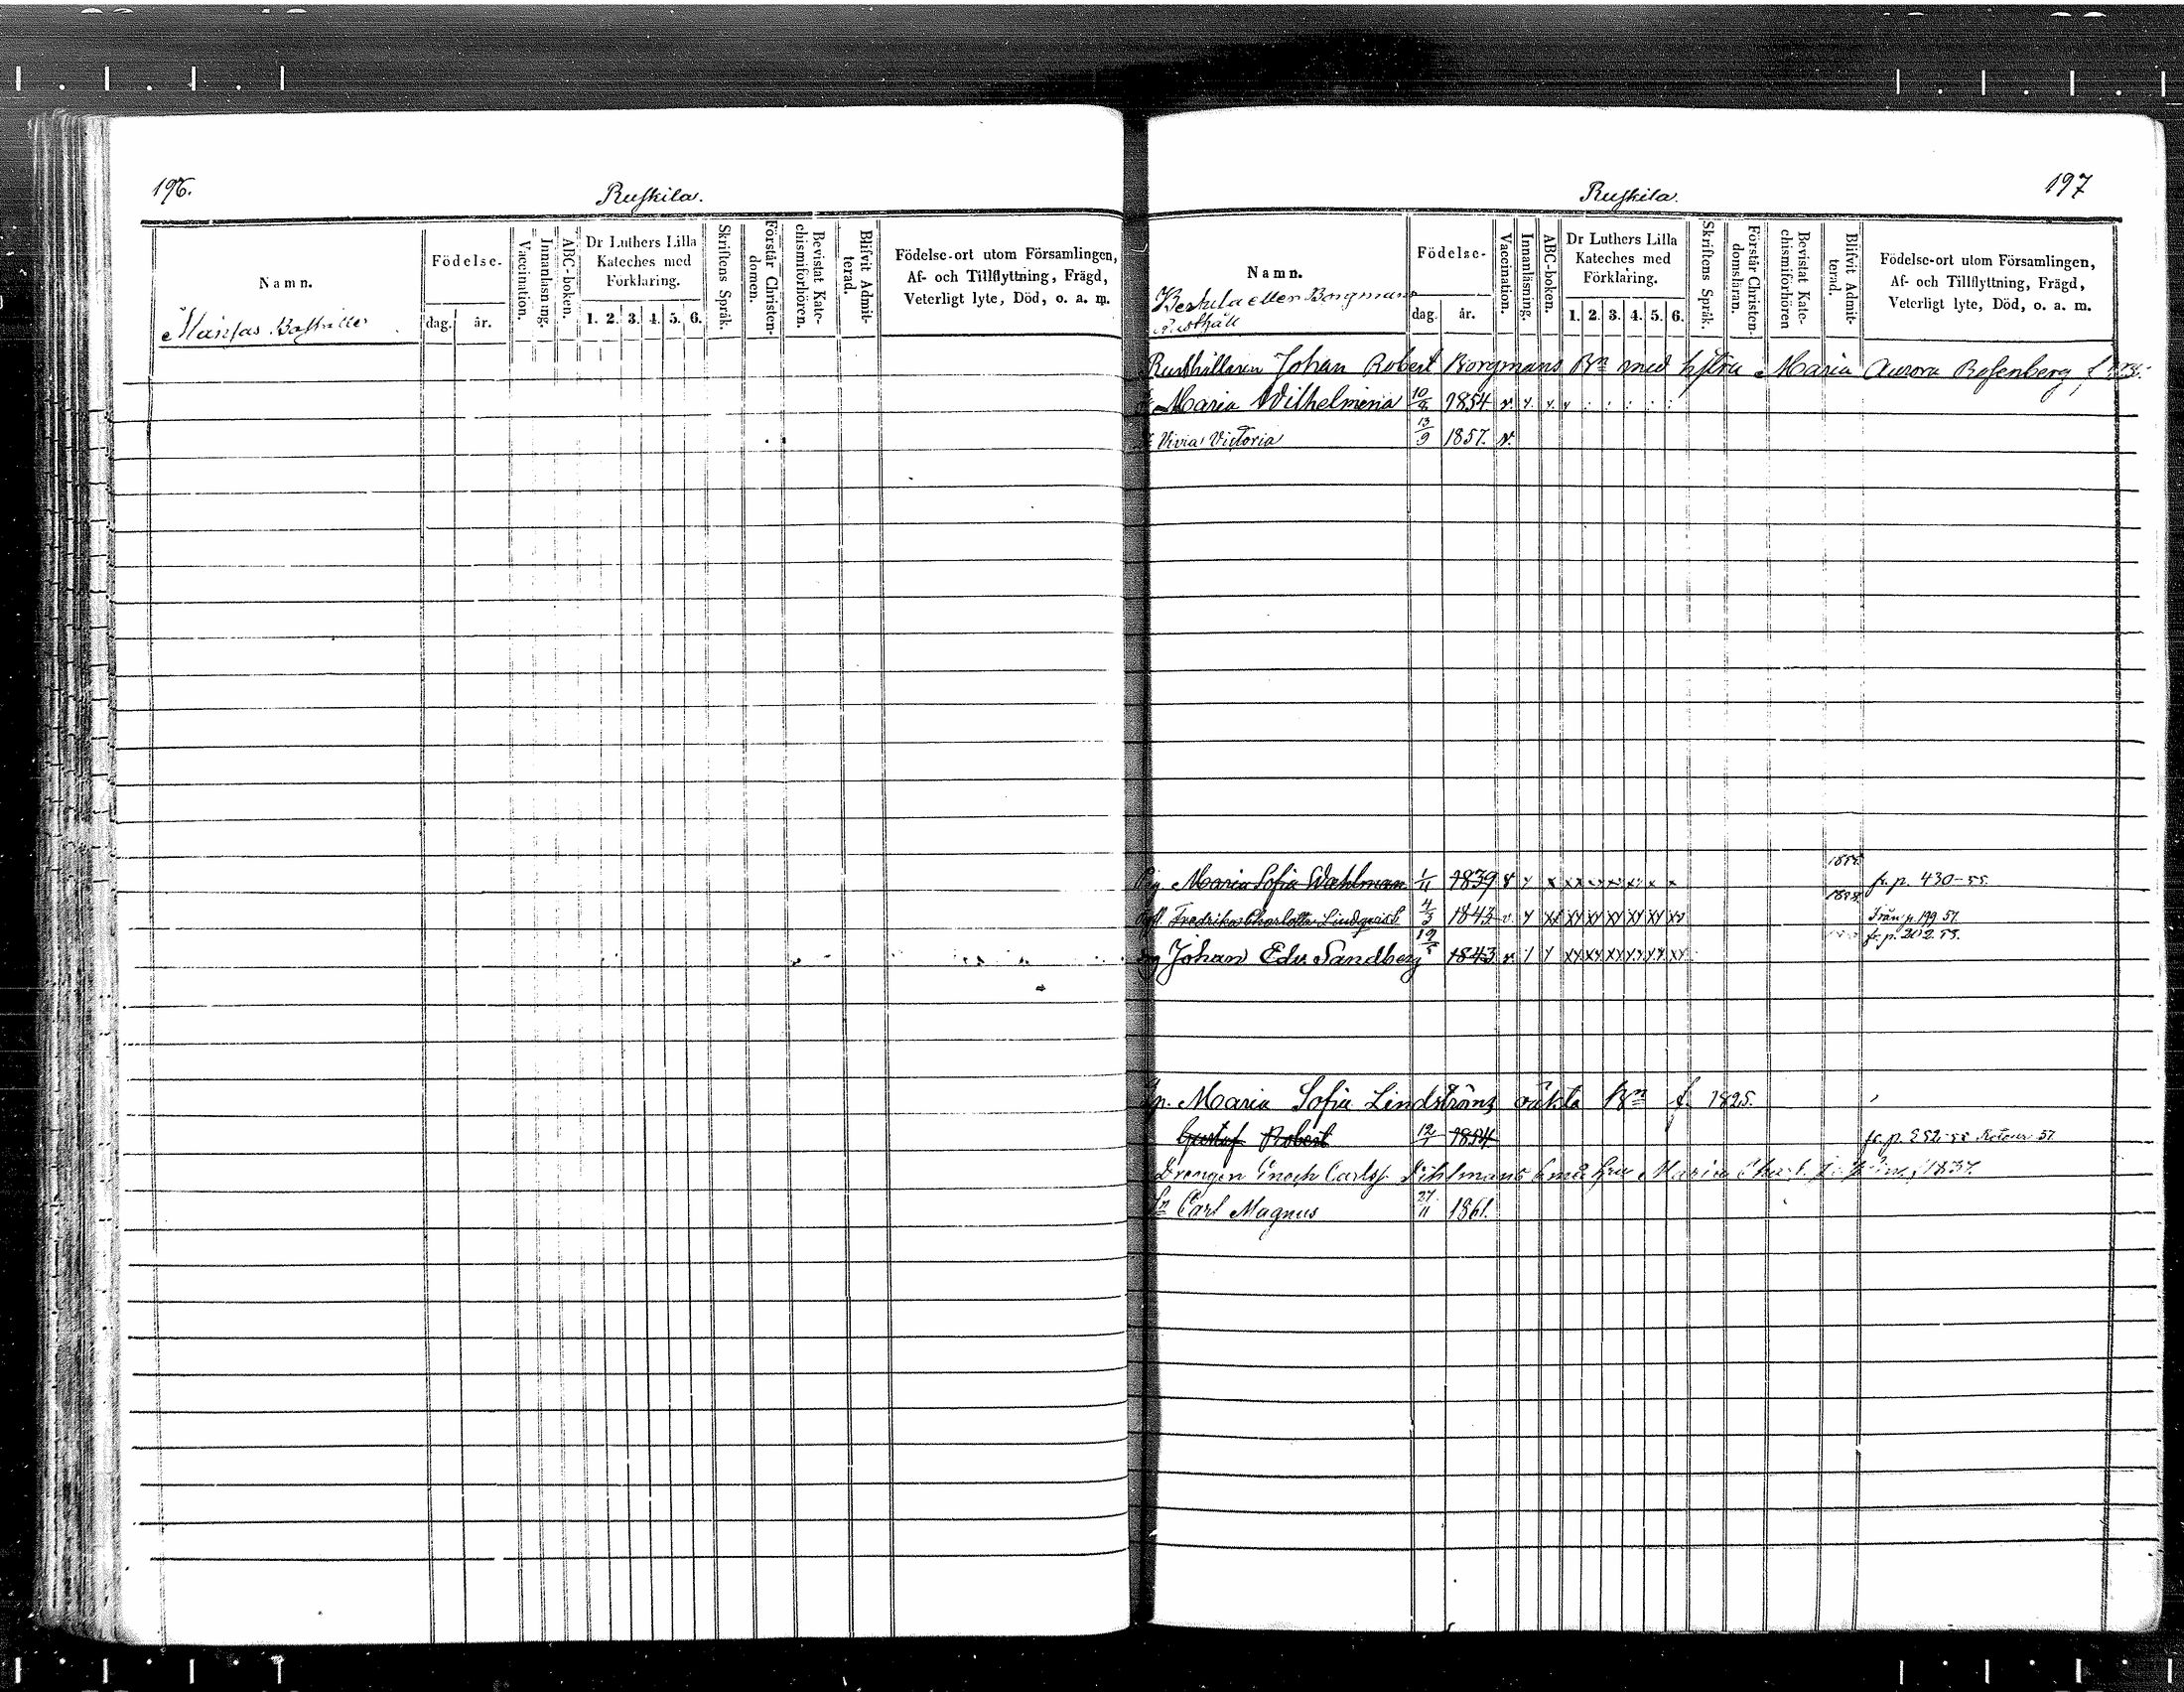 196.
Ruskila.
Namn.
Födelse-
dag.
år.
Vaccination.
Innanläsning.
ABC-boken.
Dr Luthers Lilla
Kateches med
Förklaring.
1. 2. 3. 4. 5. 6.
Skriftens Språk.
Förstår Christen-
domen.
Bevistat Kate-
chismiförhören.
Blifvit Admit-
terad.
Födelse-ort utom Församlingen,
Af- och Tillflyttning, Frägd,
Veterligt lyte, Död, o. a. m.
197
Ruskila.
Namn.
Bertula eller Borgmans
Rusthåll
Födelse-
dag.
år.
Vaccination.
Innanläsning.
ABC-boken.
Dr Luthers Lilla
Kateches med
Förklaring.
1. 2. 3. 4. 5. 6.
Skriftens Språk.
Förstår Christen-
domsläran.
Bevistat Kate-
chismiförhören
Blifvit Admit-
terad.
Födelse-ort utom Församlingen,
Af- och Tillflyttning, Frägd,
Veterligt lyte, Död, o. a. m.
Rusthållaren Johan Robert Borgmans Bn med hustru Maria Aurora Rosenberg
Maria Wilhelmina 10/8 1854 v. y. x. v
Vivia Victoria 13/9 1857. v.
Pig. Maria Sofia Wahlman 1/11 1839 v y x xx x x x x x fr. p. 430-55.
Fredrika Charlotta Lindqvist 4/3 1843 v. y xx xy xy xy xy xy xy Från p. 199 57.
Johan Edv Sandberg 19/5 1843 v. / y xy xy xy xy xy xy fr. p. 202. 59.
Maria Sofia Lindströms oäkta Bn f. 1825.
Gustaf Robert 12/1 1854 fr. p. 252-55 Retour 57
Drengen Enoch Carlss. med hru Maria f 1837.
Sn Carl Magnus 27/11 1861.